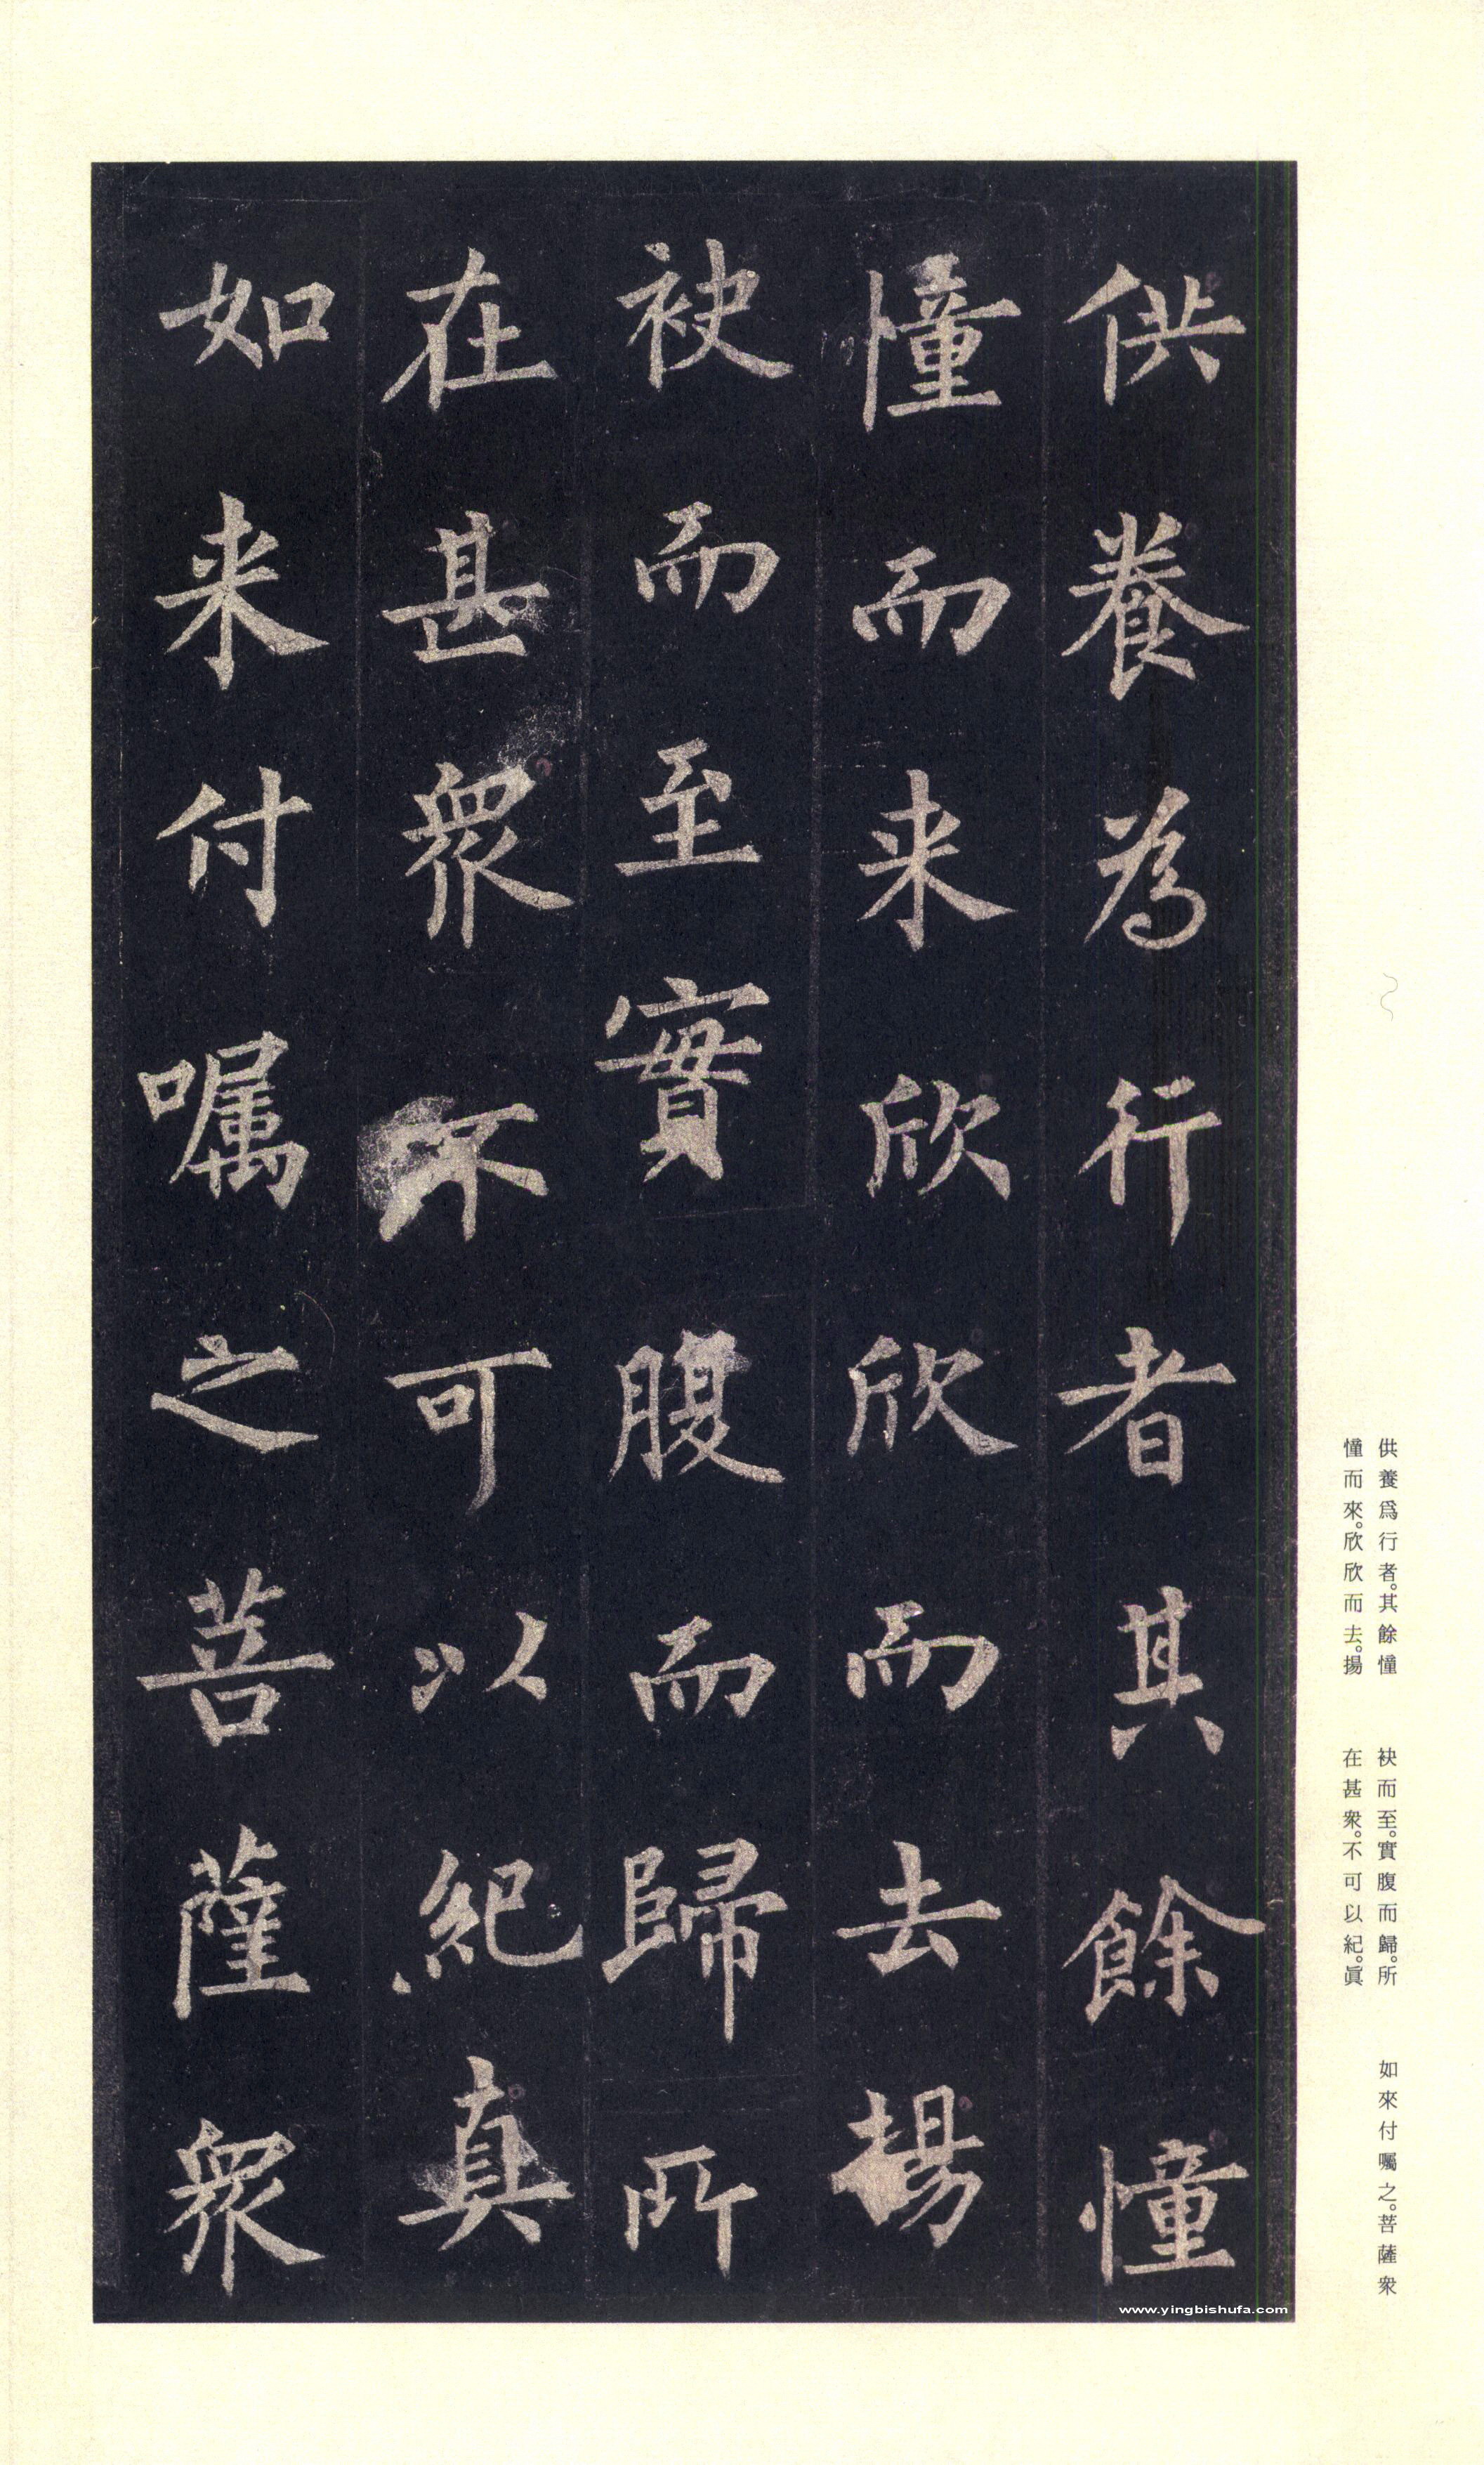 供養為行者其餘憧
憧而来欣欣而去揚
袂而至實腹而歸所
在甚衆不可以紀真
如来付囑之菩薩衆
供養爲行者。其餘憧
憧而來。欣欣而去。揚
袂而至。實腹而歸。所
在甚衆。不可以紀。眞
如來付囑之。菩薩衆
www.yingbishufa.com